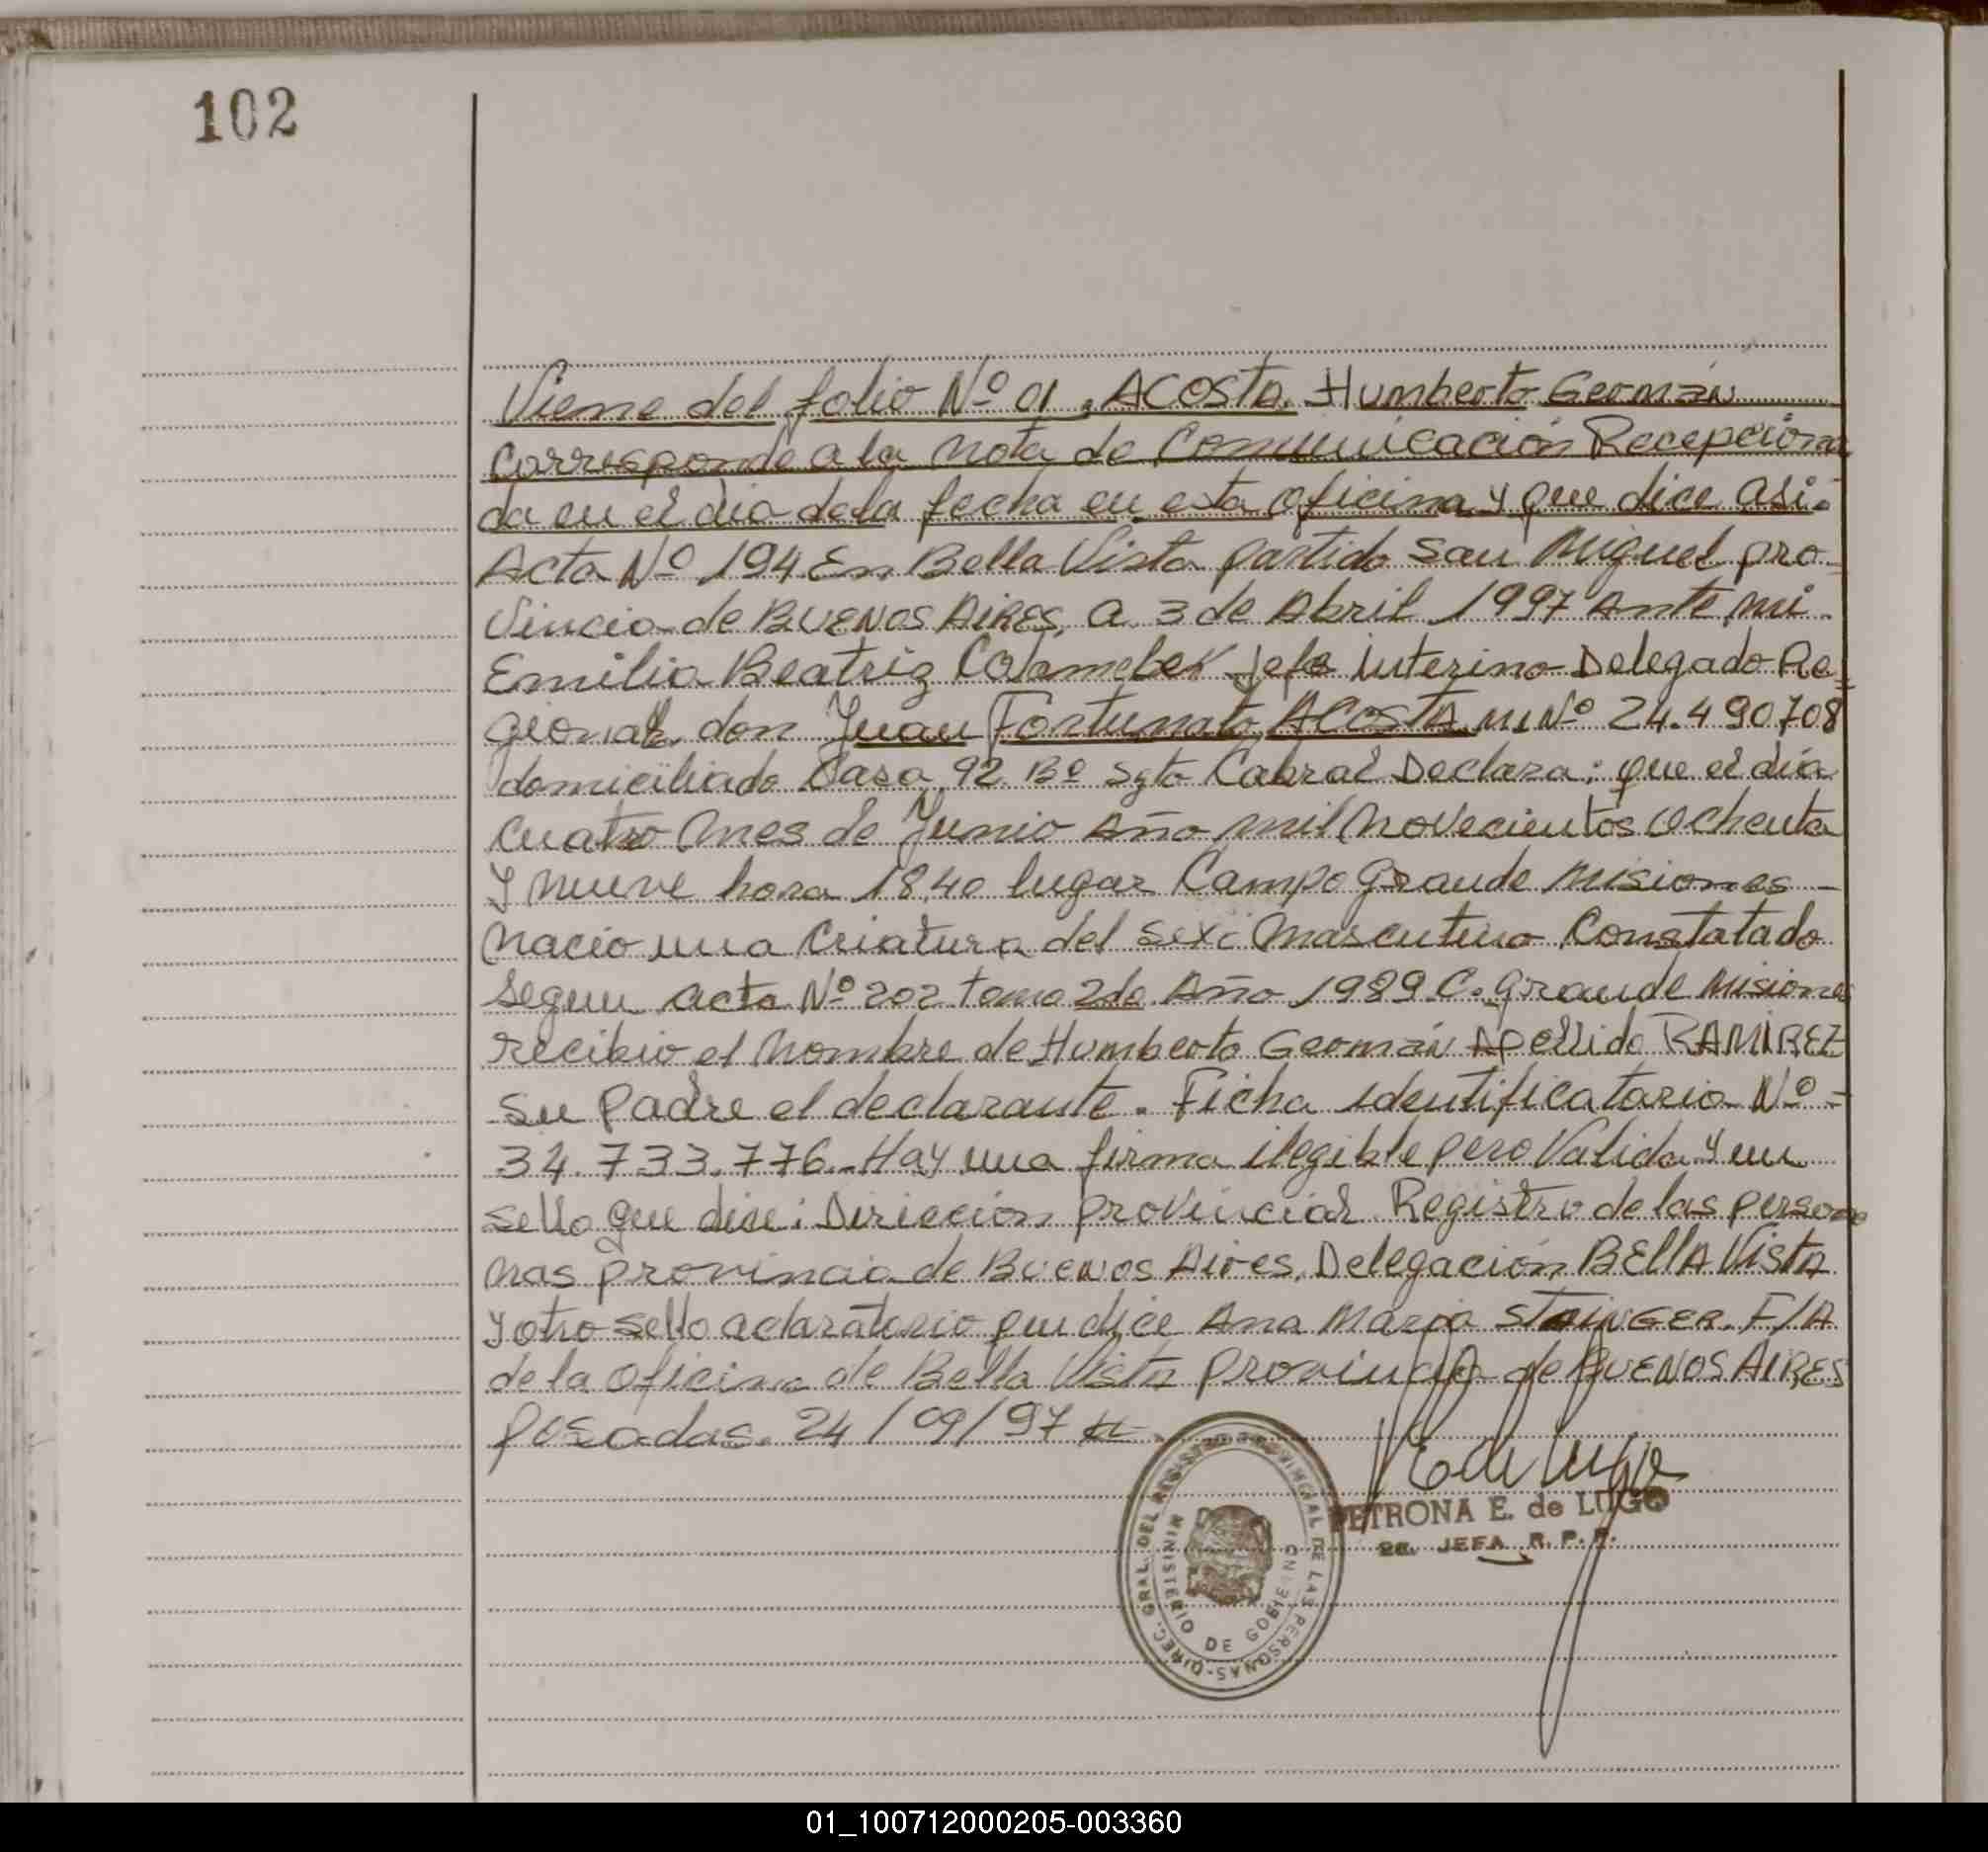 102
Viene del folio Nº 01, ACOSTA, Humberto Germán
Corresponde a la Nota de Comunicación Recepciona
da en el dia de la fecha en esta oficina y que dice asi.
Acta Nº 194 En Bella Vista partido San Miguel pro-
vincia de BUENOS AIRES, a 3 de Abril 1997 Ante mi.
Emilia Beatriz Jefe interino Delegado Re=
gional, don Juan Fortunato ACOSTA MI Nº 24.490708
domiciliado Casa 92 Bº Sgto Cabral Declara: que el dia
cuatro Mes de Junio Año mil novecientos ochenta
Y nueve hora 18,40 lugar Campo Grande Misiones -
Nacio una Criatura del sexo Masculino Constatado
Segun acta Nº 202 tomo 2do Año 1989 C. Grande Misiones
recibio el Nombre de Humberto Germán Apellido RAMIREZ
su Padre el declarante. Ficha identificatoria Nº =
34.733.776. Hay una firma ilegible pero Valida y un
sello que dice: Direccion Provincial Registro de las perso
nas provincia de Buenos Aires, Delegación BELLA VISTA
y otro sello aclaratorio que dice Ana Maria STAINGER. F/A
de la oficina de Bella Vista provincia de BUENOS AIRES
Posadas. 24/09/97
PETRONA E. de LUGO
JEFA R. P. P.
DIREC. GRAL. DEL REGISTRO PROVINCIAL DE LAS PERSONAS
MINISTERIO DE GOBIERNO
01_100712000205-003360